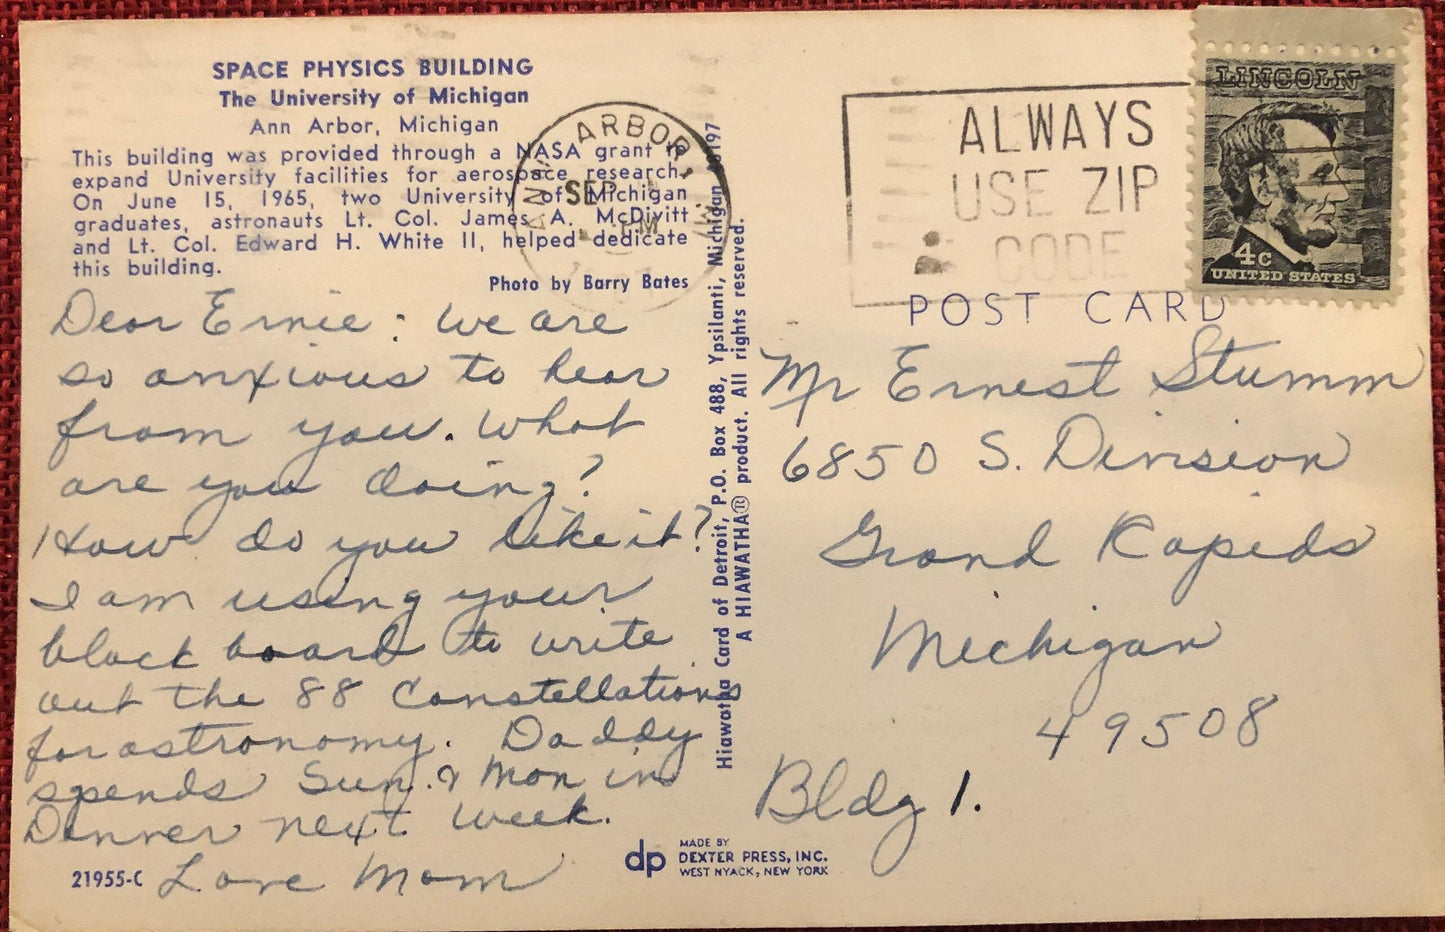 SPACE PHYSICS BUILDING
The University of Michigan
Ann Arbor, Michigan
This building was provided through a NASA grant to
expand University facilities for aerospace research.
On June 15, 1965, two University of Michigan
graduates, astronauts Lt. Col. James A. McDivitt
and Lt. Col. Edward H. White II, helped dedicate
this building.
Photo by Barry Bates
Dear Ernie: We are
so anxious to hear
from you. What
are you doing?
How do you like it?
I am using your
black board to write
out the 88 Constellations
for astronomy. Daddy
spends Sun. & Mon in
Denver next week.
Love Mom
21955-C
Hiawatha Card of Detroit, P.O. Box 488, Ypsilanti, Michigan 48197
A HIAWATHA® product. All rights reserved.
ANN ARBOR, MI
SEP
PM
ALWAYS
USE ZIP
CODE
LINCOLN
4c
UNITED STATES
POST CARD
Mr Ernest Stumm
6850 S. Division
Grand Rapids
Michigan
49508
Bldg 1.
dp
MADE BY
DEXTER PRESS, INC.
WEST NYACK, NEW YORK